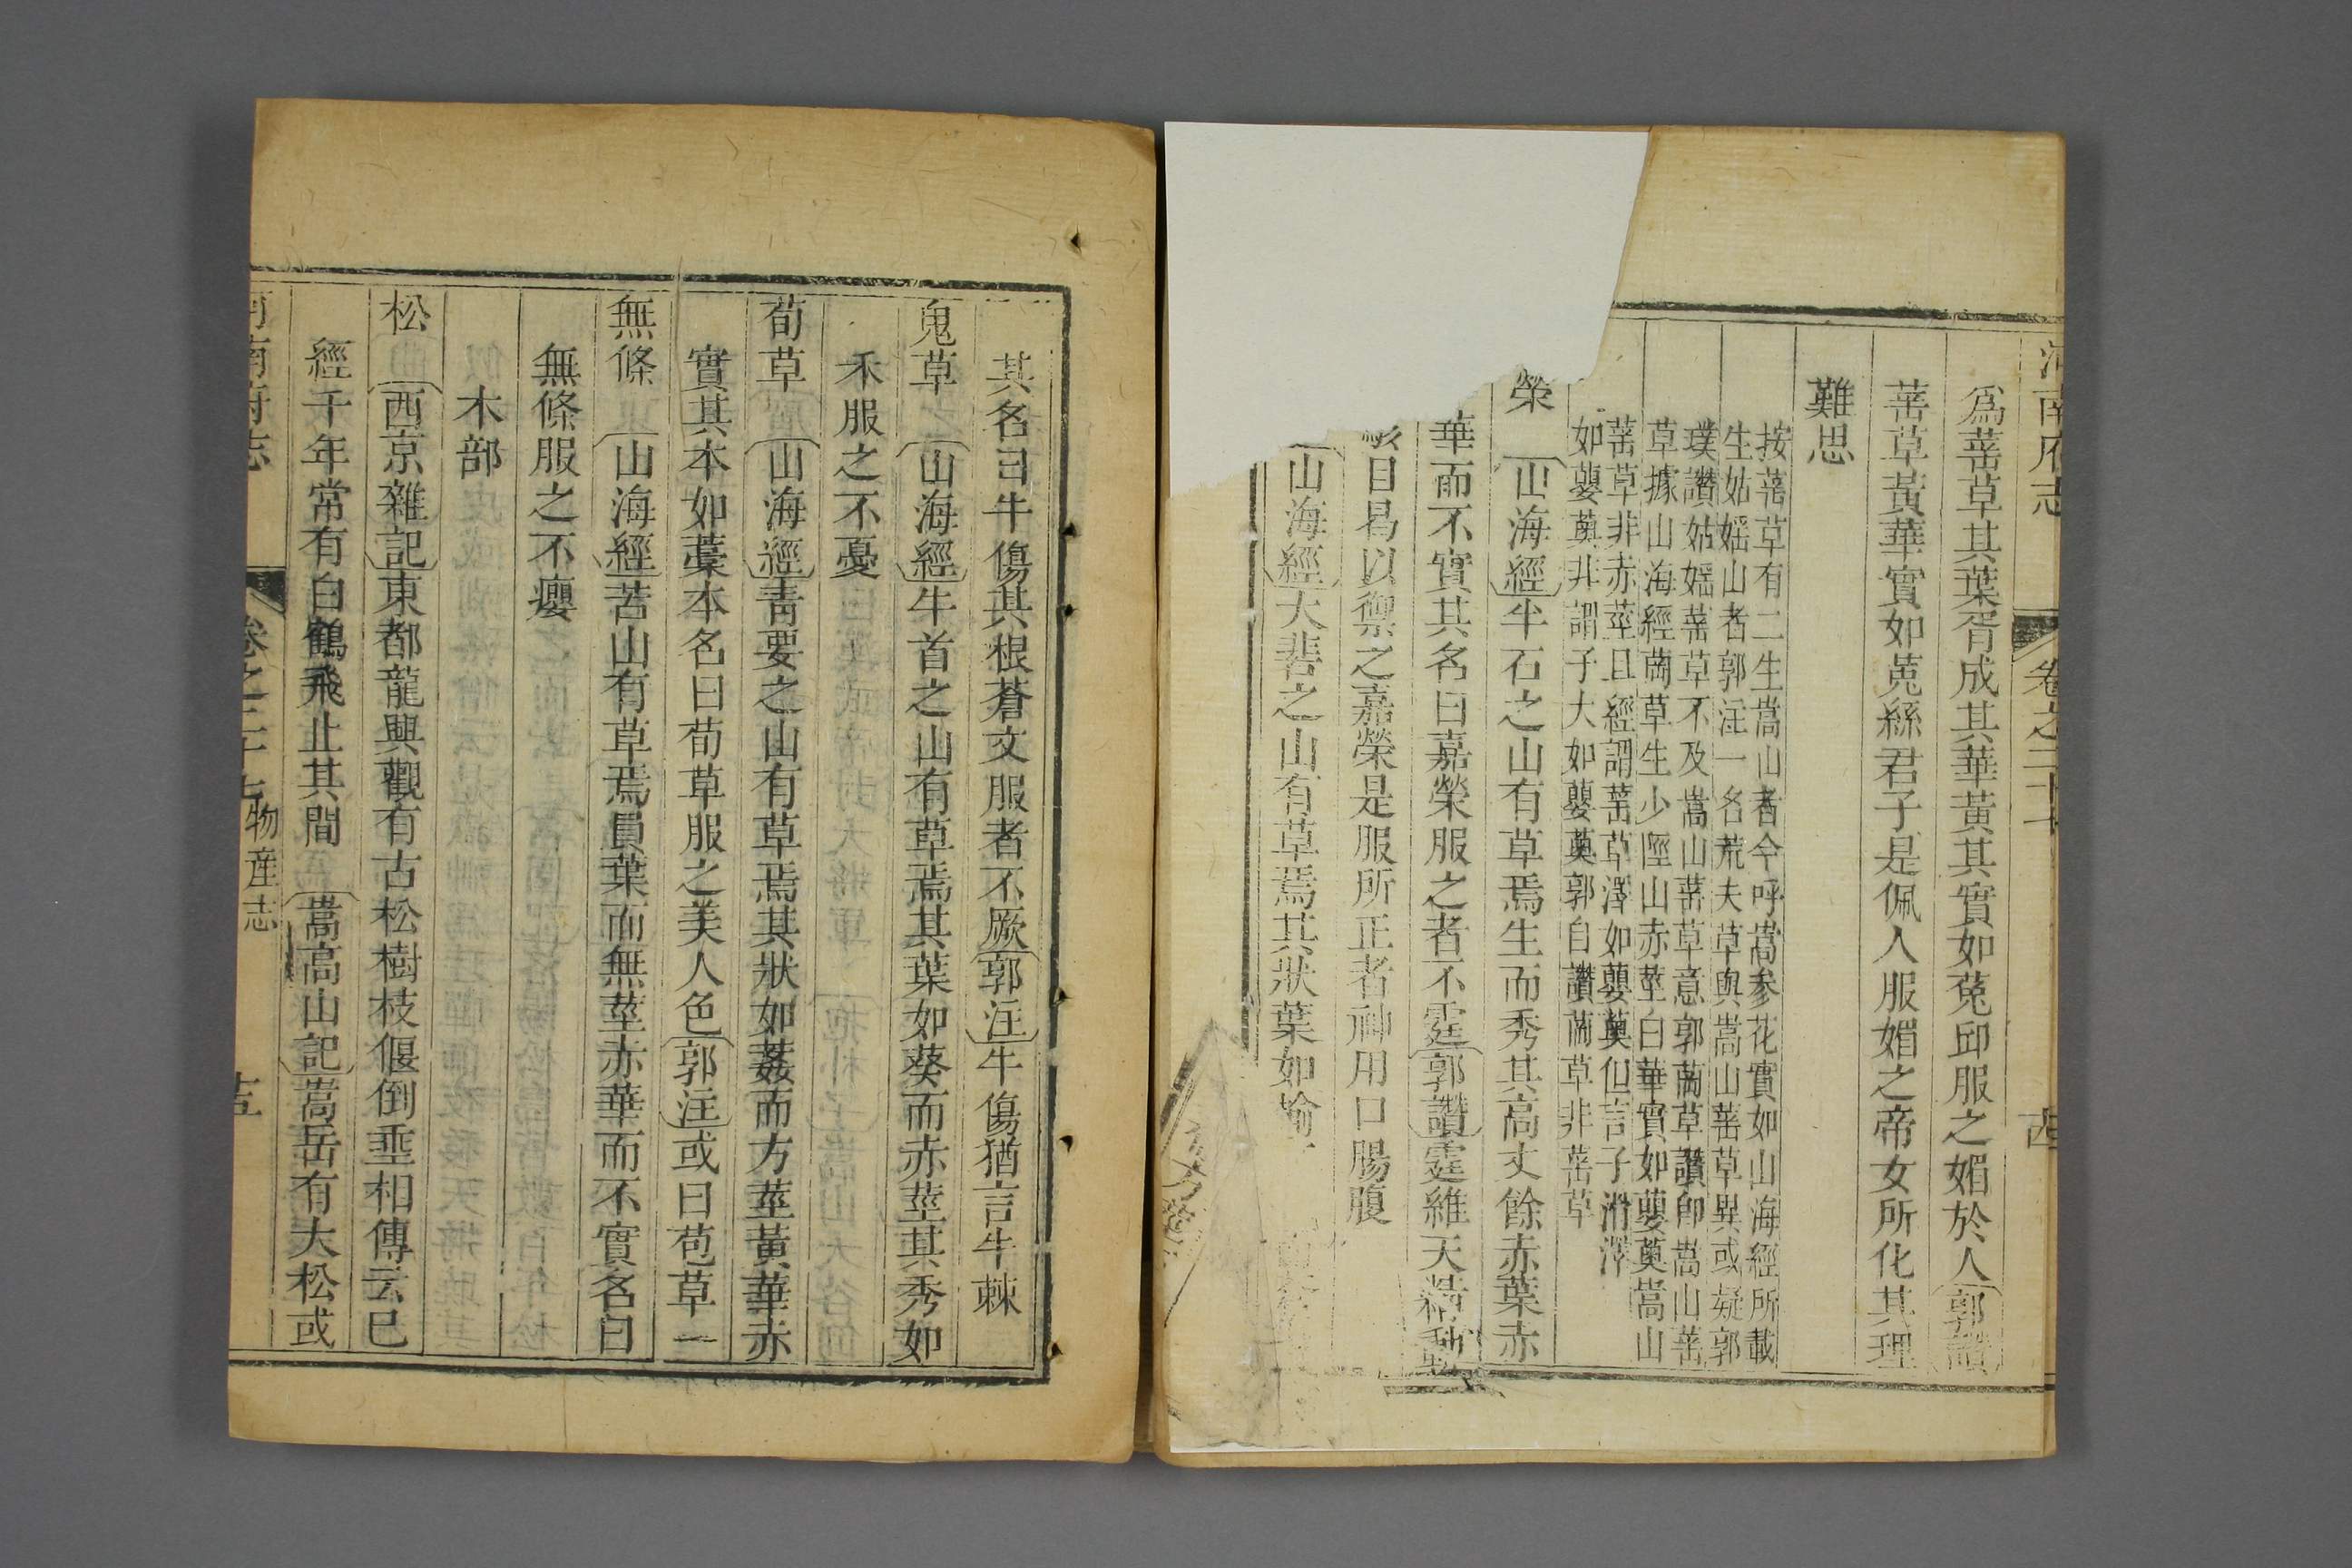 河南府志 卷之二十七
爲䔄草其葉胥成其華黃其實如菟邱服之媚於人郭讚
䔄草黃華實如菟絲君子是佩人服媚之帝女所化其理
難思
按䔄草有二生嵩山者今呼嵩參花實如山海經所載
生姑媱山者郭注一名荒夫草與嵩山䔄草異或疑郭
璞讚姑媱䔄草不及嵩山䔄草意郭䔇草讚卽嵩山䔄
草據山海經䔇草生少陘山赤莖白華實如蘡薁嵩山
䔄草非赤莖且經謂䔄草澤如蘡薁但言子滑澤
如蘡薁非謂子大如蘡薁郭自讚䔇草非䔄草
榮 山海經半石之山有草焉生而秀其高丈餘赤葉赤
華而不實其名曰嘉榮服之者不霆郭讚霆維天精動
目曷以禦之嘉榮是服所正者神用口腸腹
山海經大𦳝之山有草焉其狀葉如榆
其名曰牛傷其根蒼文服者不厥郭注牛傷猶言牛棘
鬼草 山海經牛首之山有草焉其葉如葵而赤莖其秀如
禾服之不憂
荀草 山海經青要之山有草焉其狀如葌而方莖黃華赤
實其本如藁本名曰荀草服之美人色郭注或曰苞草
無條 山海經苦山有草焉員葉而無莖赤華而不實名曰
無條服之不癭
木部
松 西京雜記東都龍興觀有古松樹枝偃倒垂相傳云已
經千年常有白鶴飛止其間 嵩高山記嵩岳有大松或
河南府志 卷之二十七 物産志